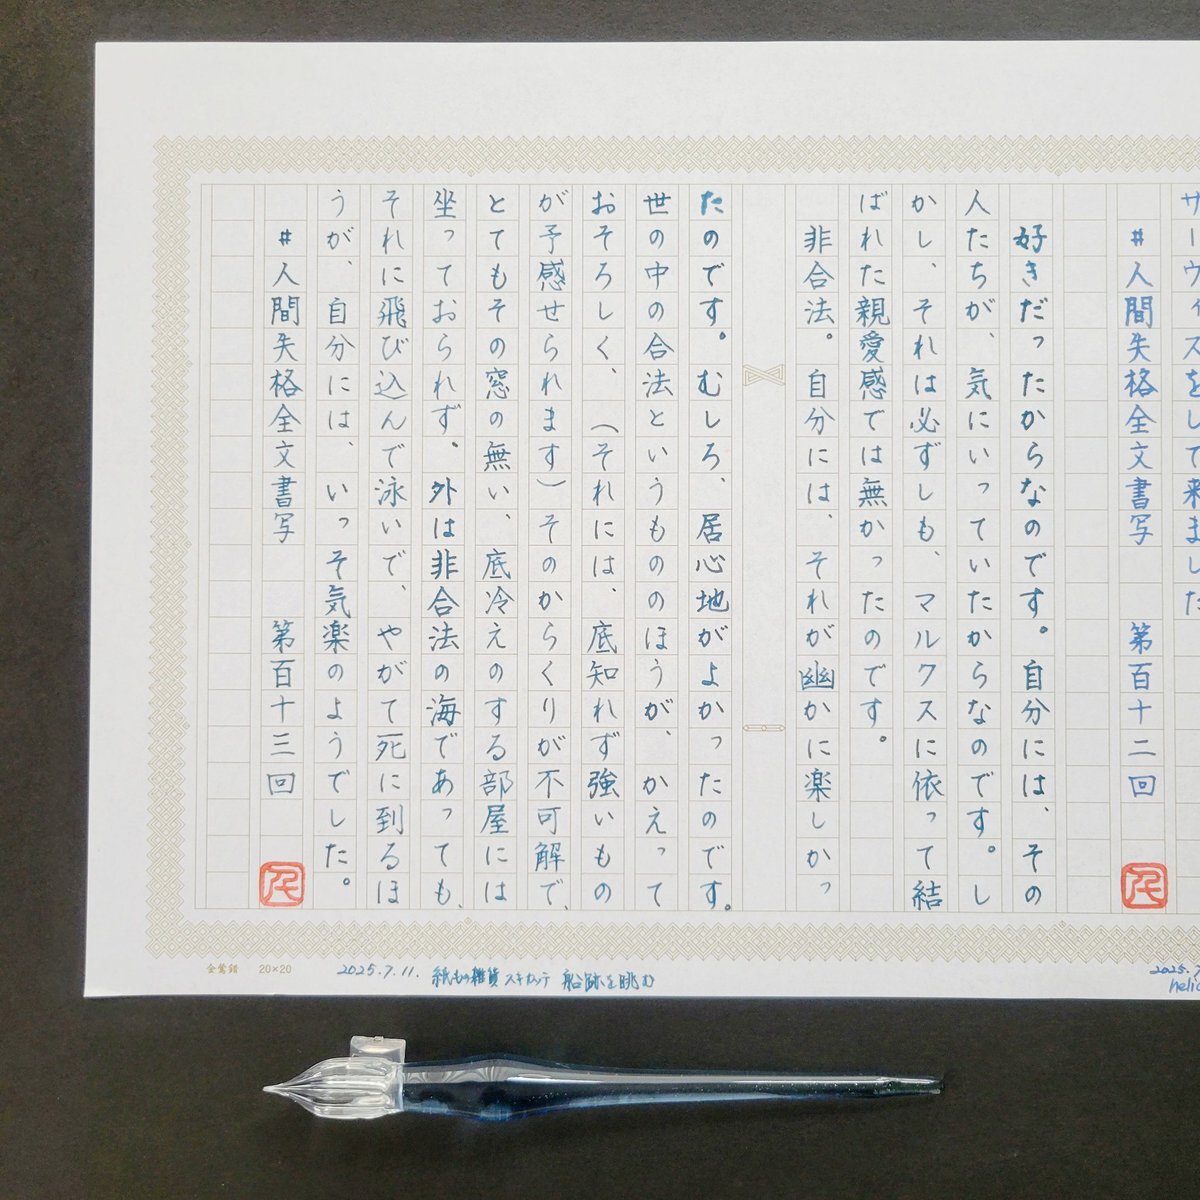 サーヴィスをして来ました
#人間失格全文書写　第百十二回
好きだったからなのです。自分には、その
人たちが、気にいっていたからなのです。し
かし、それは必ずしも、マルクスに依って結
ばれた親愛感では無かったのです。
非合法。自分には、それが幽かに楽しかっ
たのです。むしろ、居心地がよかったのです。
世の中の合法というもののほうが、かえって
おそろしく、（それには、底知れず強いもの
が予感せられます）そのからくりが不可解で、
とてもその窓の無い、底冷えのする部屋には
坐っておられず、外は非合法の海であっても、
それに飛び込んで泳いで、やがて死に到るほ
うが、自分には、いっそ気楽のようでした。
#人間失格全文書写　第百十三回
金鶯錯 20×20
2025.7.11. 紙もの雑貨 スキカッテ 船跡を眺む
2025.7
helic